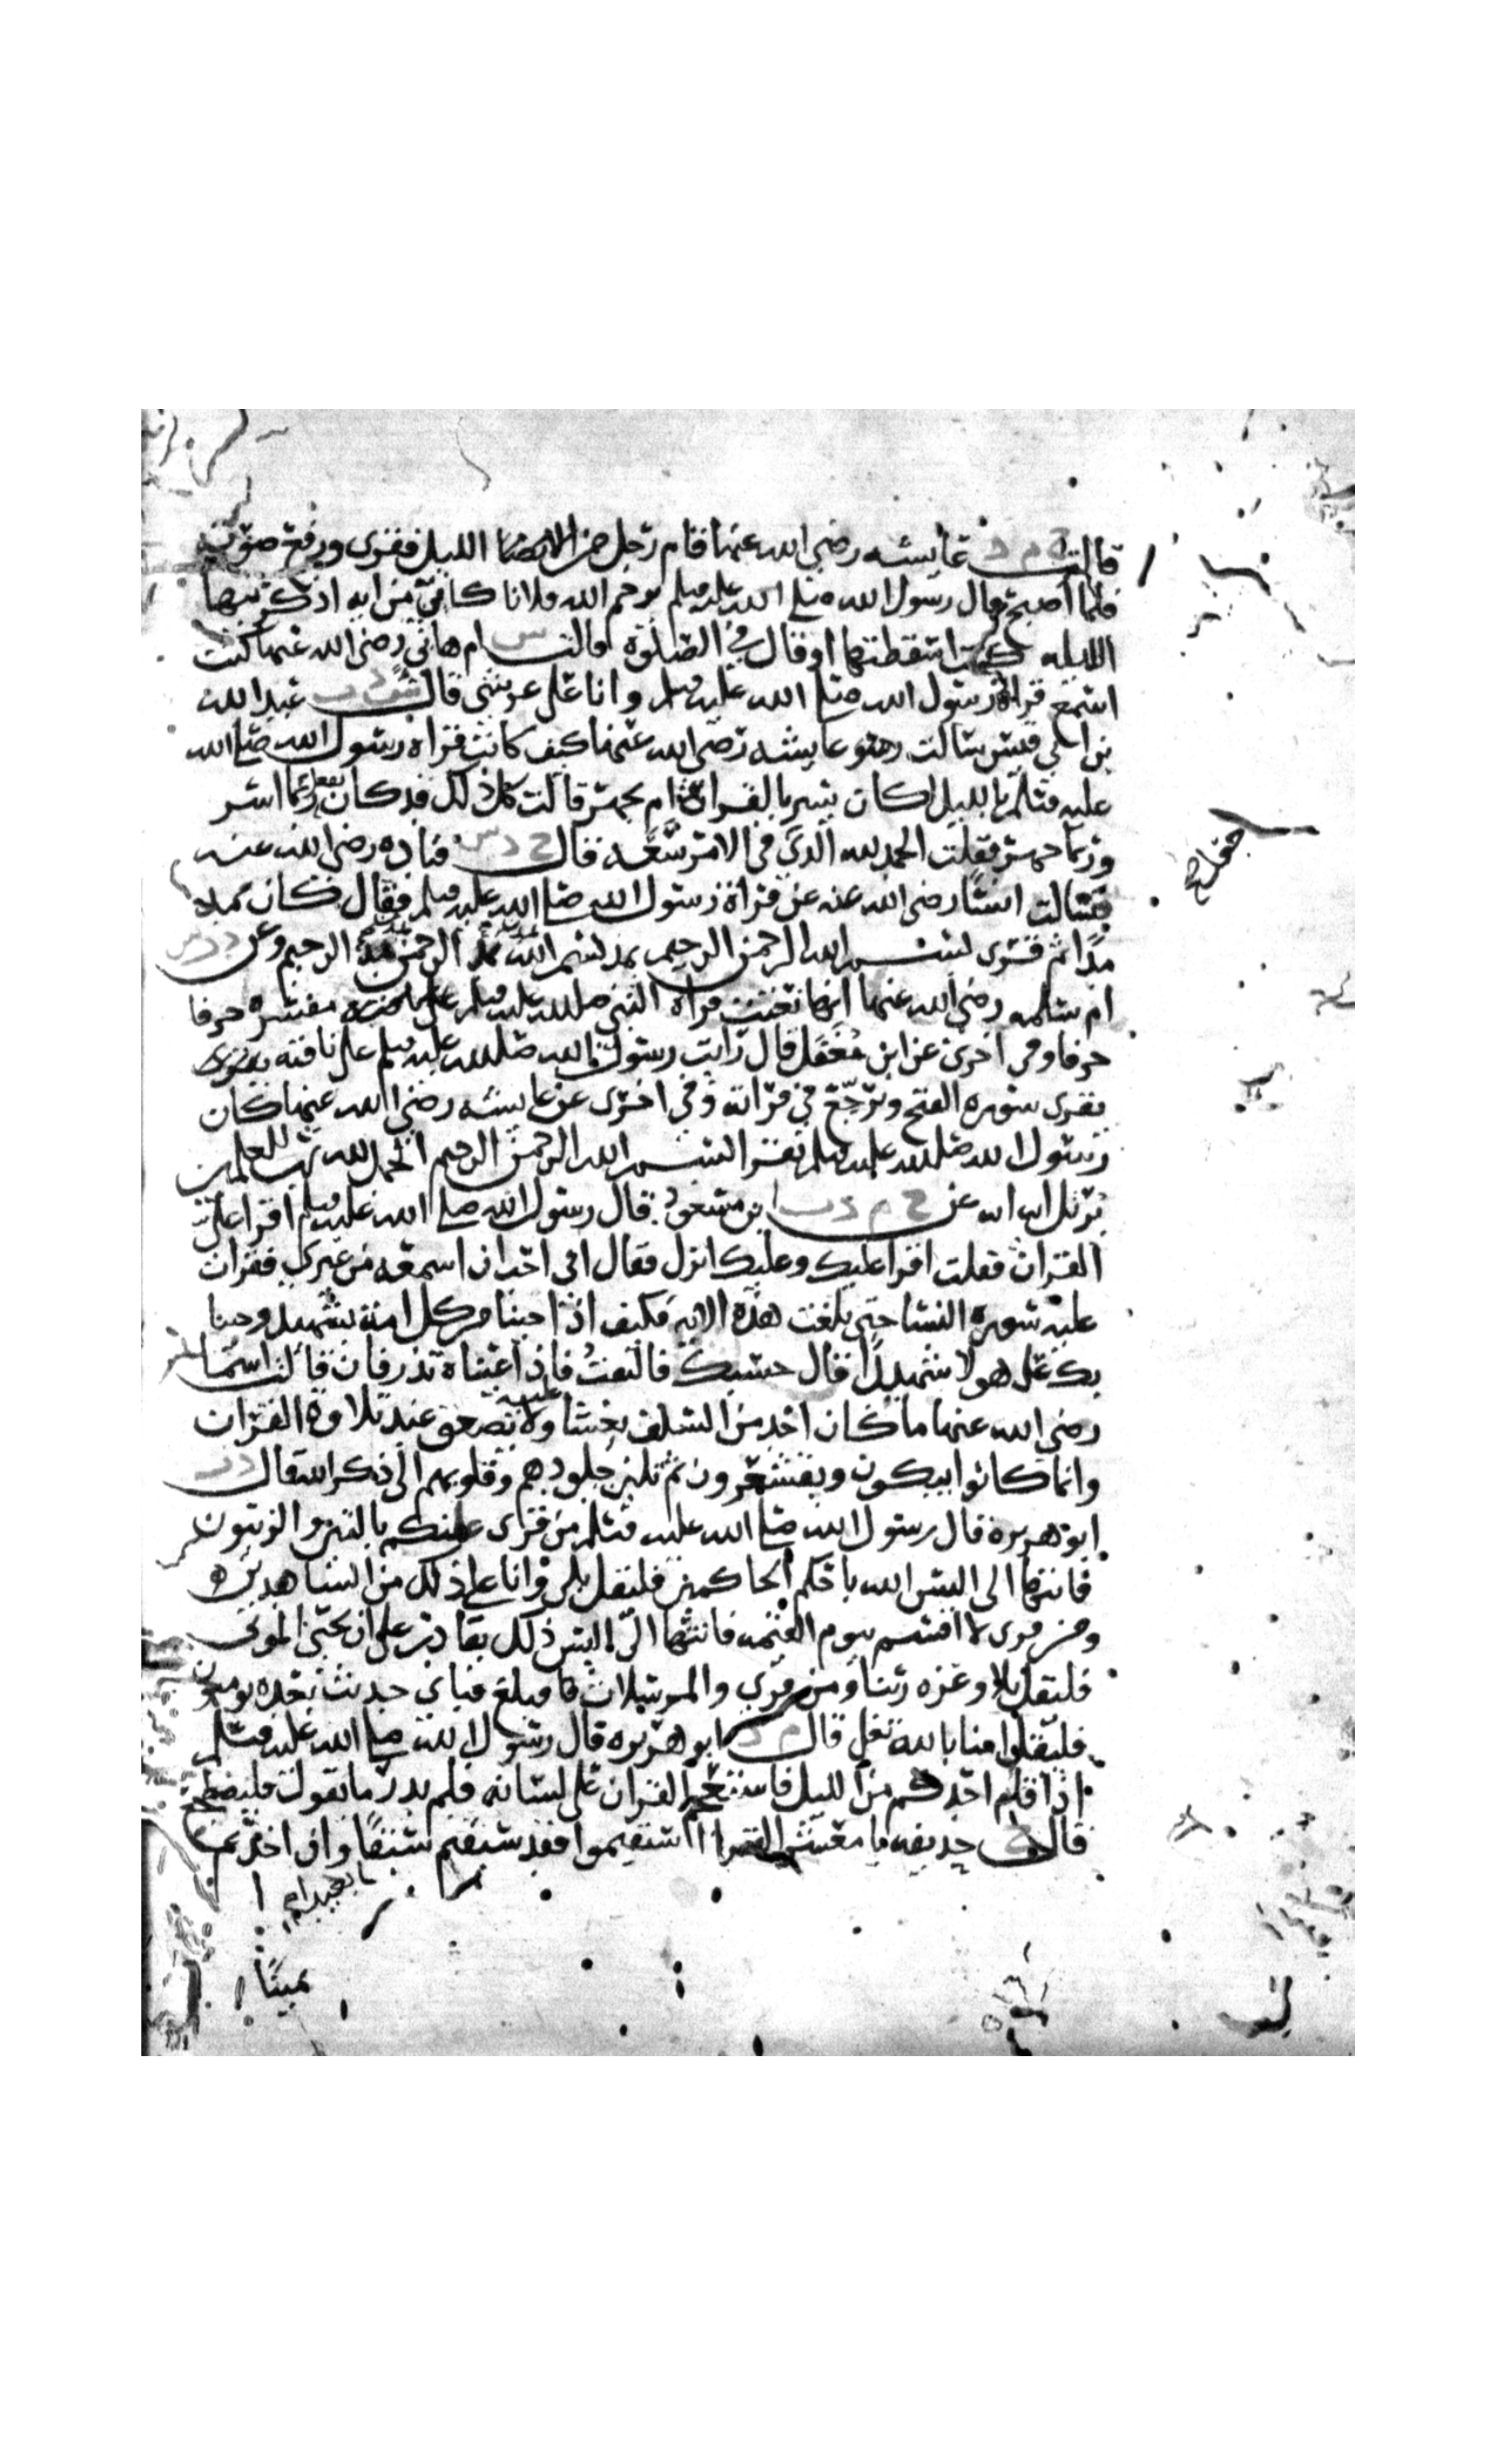 قالت خ م د عايشه رضي الله عنها قام رجل من الانصار الليل فقرى ورفع صوته
فلما أصبح قال رسول الله صلى الله عليه وسلم يرحم الله فلانا كاين من ايه اذكرنيها
الليله كنت اسقطتها او قال في الصلوة قالت س ام هاني رضي الله عنها كنت
استمع قراة رسول الله صلى الله عليه وسلم وانا على عريشي قال عبد الله
بن ابي قيس سالت عايشه رضي الله عنها كيف كانت قراة رسول الله صلى الله
عليه وسلم بالليل اكان يسر بالقراة ام يجهر قالت كل ذلك قد كان يفعل ربما اسر
وربما جهر فقلت الحمد لله الذي في الامر سعة قال خ د س قتاده رضي الله عنه
سالت انسا رضي الله عنه عن قراة رسول الله صلى الله عليه وسلم فقال كان يمد
مدا ثم قرى بسم الله الرحمن الرحيم يمد بسم الله ويمد الرحمن ويمد الرحيم وعن د ر س
ام سلمه رضي الله عنها انها نعتت قراة النبي صلى الله عليه وسلم مفسره حرفا
حرفا وفي اخرى عن ابن مغفل قال رايت رسول الله صلى الله عليه وسلم على ناقته يقرى
يقرى سوره الفتح ويرجع في قراته وفي اخرى عن عايشه رضي الله عنها كان
رسول الله صلى الله عليه وسلم يقرا بسم الله الرحمن الرحيم الحمد لله رب العلمين
يرتل ايه ايه عن خ م د ت ابن مسعود قال رسول الله صلى الله عليه وسلم اقرا علي
القران فقلت اقرا عليك وعليك انزل فقال اني احب ان اسمعه من غيري فقرات
عليه سورة النسا حتى بلغت هذه الايه فكيف اذا جينا من كل امة بشهيد وجينا
بك على هولا شهيدا قال حسبك فالتفت فاذا عيناه تذرفان قالت اسما
رضي الله عنها ما كان احد من السلف يغشا عليه ولا يصعق عند تلاوة القران
وانما كانوا يبكون ويقشعرون ثم تلين جلودهم وقلوبهم الى ذكر الله قال د ت
ابو هريره قال رسول الله صلى الله عليه وسلم من قرى منكم بالتين والزيتون
فانتها الى اليس الله باحكم الحاكمين فليقل بلى وانا على ذلك من الشاهدين
ومن قرى لا اقسم بيوم القيمه فانتها الى اليس ذلك بقادر على ان يحيي الموتى
فليقل بلا وعزه ربنا ومن قرى والمرسلات فبلغ فباي حديث بعده يومنون
فليقل امنا بالله تعلى قال م د ابو هريره قال رسول الله صلى الله عليه وسلم
اذا قام احدكم من الليل فاستعجم القران على لسانه فلم يدر ما يقول فليضطجع
قال خ حذيفه يا معشر القرا استقيموا فقد سبقتم سبقا وان اخذتم
يمينا